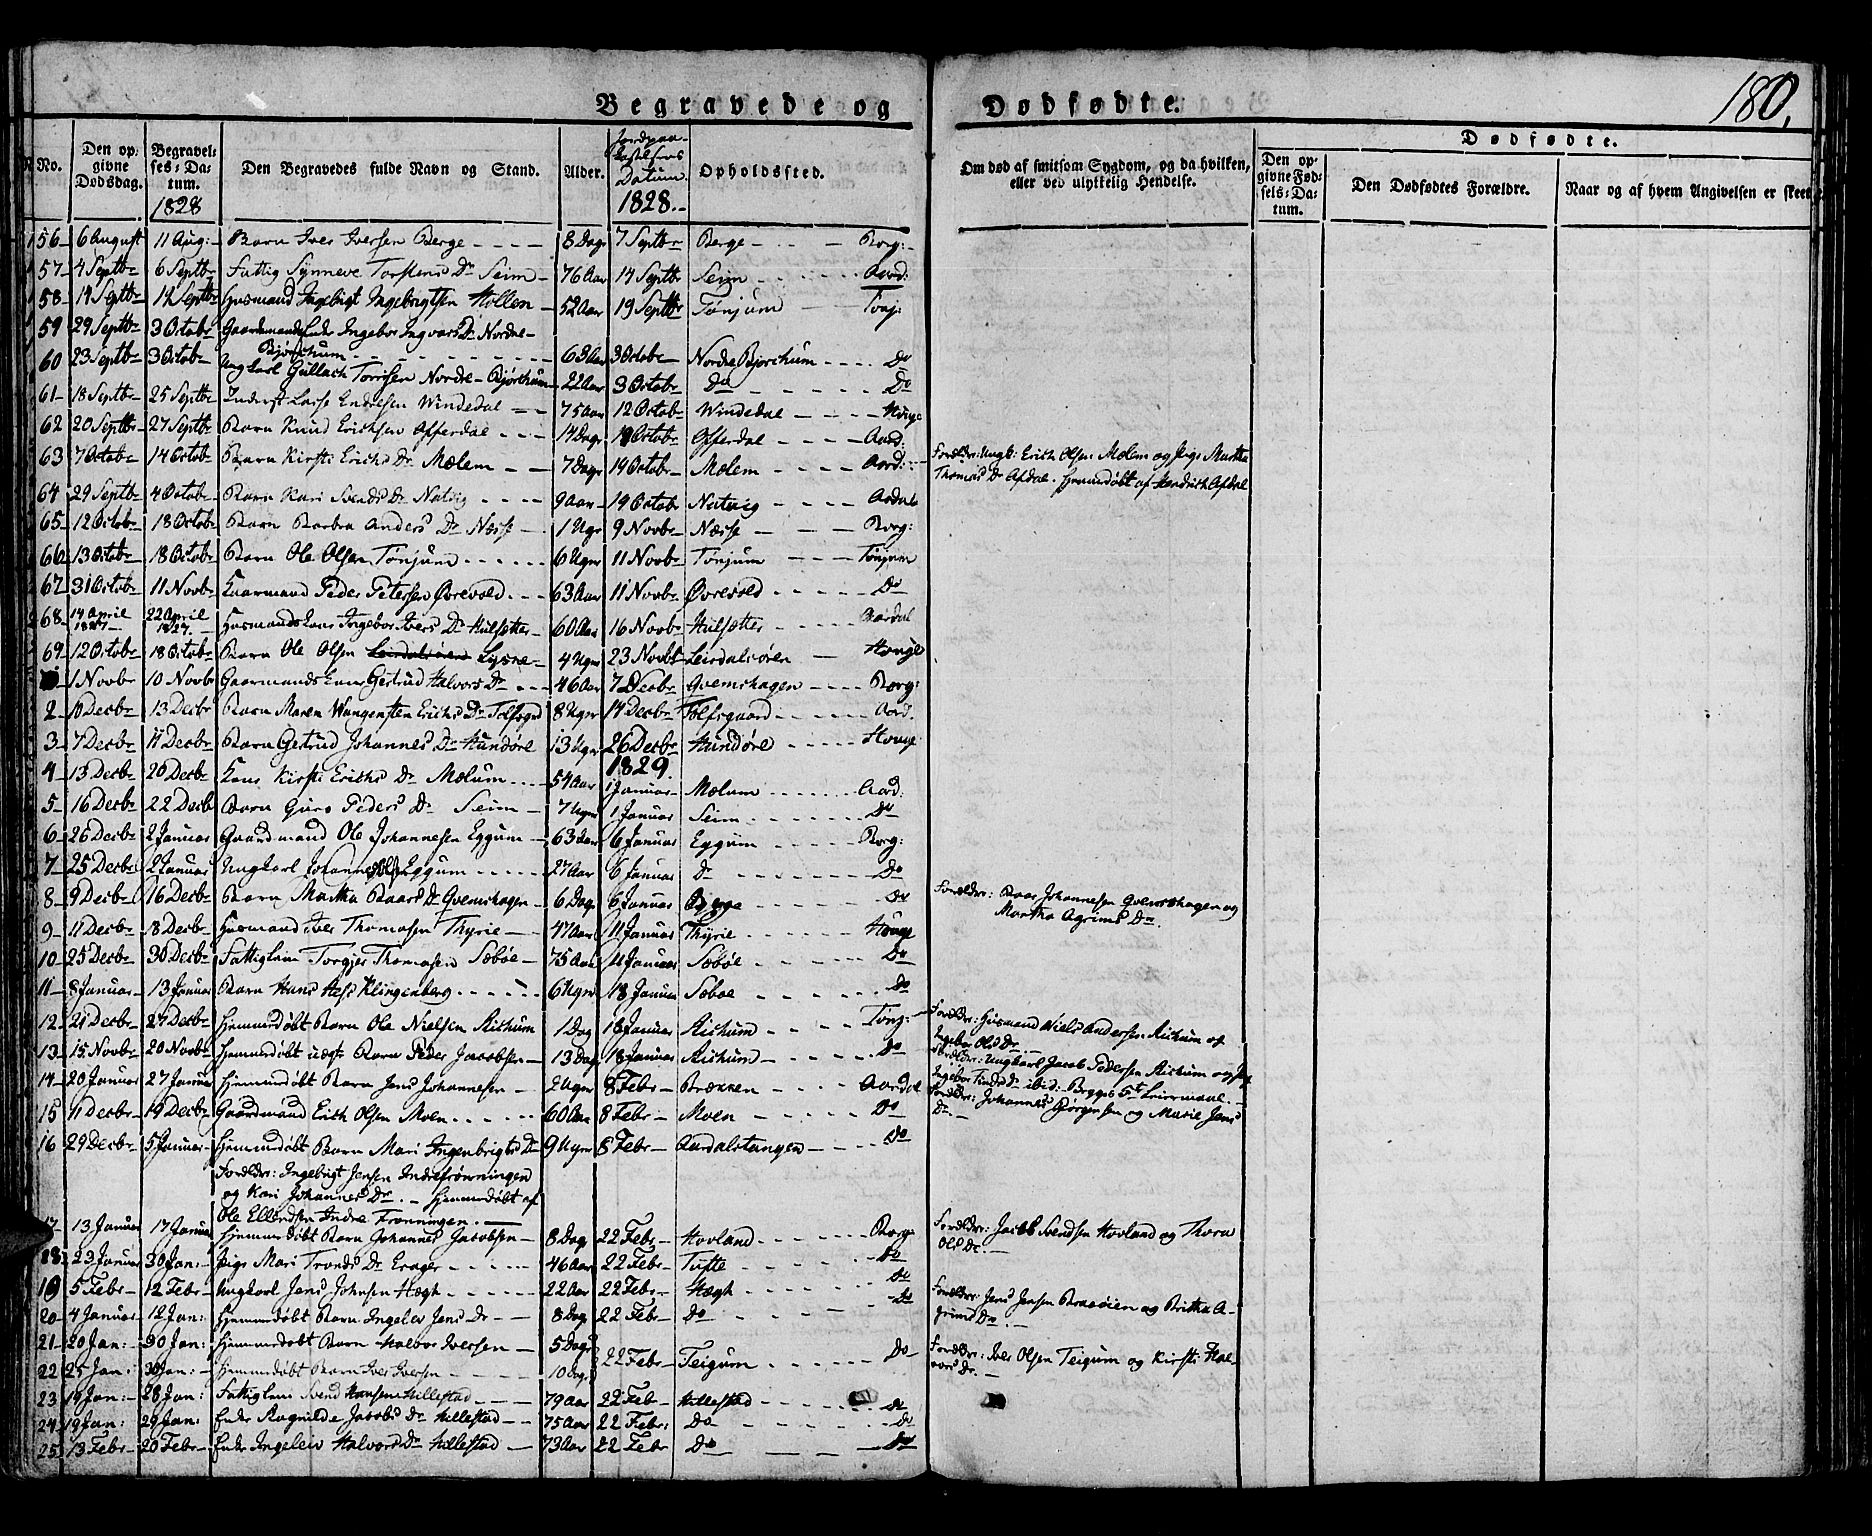 Begravede og Dødfødte.
180.
No.
Den opgivne Dødsdag.
Begravelses-Datum. 1828
Den Begravedes fulde Navn og Stand.
Alder.
Datum 1828.
Opholdssted.
Om død af smitsom Sygdom, og da hvilken, eller ved ulykkelig Hendelse.
Dødfødte.
Den opgivne Fødsels-Datum.
Den Dødfødtes Forældre.
Naar og af hvem Angivelsen er skeet
56 6 August 11 Aug: Barn Iver Iversen Berge 8 Dage 7 Septbr Berge Borg:
57 4 Septbr 6 Septbr Fattig Synneve Torstens Dr Seim 76 Aar 14 Septbr Seim Aard:
58 14 Septbr 14 Septbr Husmand Ingebrigt Ingebrigtsen Hollen 52 Aar 19 Septbr Tønjum Tonj:
59 29 Septbr 3 Octobr Gaardmands Enke Ingebor Ingvars Dr Nordre
Bjørchum 63 Aar 3 Octobr Nordre Bjorchum Do
60 23 Septbr 3 Octobr Ungkarl Gullach Torrisen Nordre Bjørchum 22 Aar 3 Octobr Do Do
61 18 Septbr 25 Septbr Inderst Lasse Endresen Windedal 75 Aar 12 Octobr Windedal Houge
62 20 Septbr 27 Septbr Barn Knud Erichsen Offerdal 14 Dage 19 Octobr Offerdal Aard:
63 7 Octobr 14 Octobr Barn Kirsti Erichs Dr Mælem 7 Dage 19 Octobr Mælem Aard: Forældr: Ungk: Erich Olsen Mælem og Pige Martha
Thomas Dr Afdal. Hjemmedøbt af Hendrich Afdal
64 29 Septbr 4 Octobr Barn Kari Svends Dr Natvig 9 Aar 19 Octobr Natvig Aardal
65 12 Octobr 18 Octobr Barn Barbra Anders Dr Næsse 1 Uge 9 Novbr Næsse Borg:
66 13 Octobr 18 Octobr Barn Ole Olsen Tønjum 6 Uger 11 Novbr Tønjum Tønjum
67 31 Octobr 11 Novbr Gaarmand Peder Petersen Øvrevold 63 Aar 11 Novbr Øvrevold Do
68 14 April 1827 22 April 1827 Husmands Kone Ingebor Ivers Dr Hulsætter 60 Aar 16 Novbr Hulsætter Aardal
69 12 Octobr 18 Octobr Barn Ole Olsen Leirdalsøren Lysne 4 Uger 23 Novbr Leirdalsøren Houge
1 Novbr 10 Novbr Gaarmands Kone Gertrud Halvors Dr 46 Aar 7 Decbr Qvemshagen Borg:
2 10 Decbr 13 Decbr Barn Maren Wangensten Erichs Dr 8 Uger 14 Decbr Aard.
3 7 Decbr 11 Decbr Barn Gertrud Johannes Dr Hundøre 13 Uger 26 Decbr Hundøre Houge
1829.
4 13 Decbr 20 Decbr Kone Kirsti Erichs Dr Mælum 54 Aar 1 Januar Mælum Aard:
5 16 Decbr 22 Decbr Barn Guro Peders Dr Seim 7 Uger 1 Januar Seim Do
6 26 Decbr 2 Januar Gaardmand Ole Johannesen Eggum 63 Aar 6 Januar Eggum Borg:
7 25 Decbr 2 Januar Ungkarl Johannes Ols Eggum 27 Aar 6 Januar Do Do
8 9 Decbr 16 Decbr Barn Martha Baars Dr Qvemshagen 6 Dage 6 Januar Do Forældr: Baar Johannesen Qvemshagen og
Martha Agrims Dr.
9 11 Decbr 18 Decbr Husmand Iver Thomasen Thyrie 47 Aar 11 Januar Thyrie Houge
10 25 Decbr 30 Decbr Fattiglem Torgjer Thomasen Sæbøe 75 Aar 11 Januar Sæbøe Do
11 8 Januar 13 Januar Barn Hans Klingenberg 6 Uger 18 Januar Sæbøe Do
12 21 Decbr 27 Decbr Hjemmedøbt Barn Ole Nielsen Richum 1 Dag 18 Januar Richum Tonj: Forældr: Husmand Niels Andersen Richum og
Ingebor Ols Dr
13 15 Novbr 20 Novbr Hjemmedøbt uægte Barn Peder Jacobsen 13 Dage 18 Januar Richum Do Forældr: Ungkarl Jacob Pedersen Richum og Pige
Ingebor ibid: Begges 5te Leiermaal.
14 20 Januar 27 Januar Hjemmedøbt Barn Jens Johannesen 2 Uger 8 Febr Brækken Aardal Forældr: Johannes Børgesen og Marie Jens
Dr.
15 11 Decbr 19 Decbr Gaardmand Erich Olsen Moen 60 Aar 8 Febr Moen Do
16 29 Decbr 5 Januar Hjemmedøbt Barn Mari Ingebrigts Dr 9 Uger 8 Febr Aardalstangen Do
Forældr: Ingebrigt Jensen Indrefrønningen
og Kari Johannes Dr. Hjemmedøbt af
Ole Ellendsen Indre Frønningen.
17 13 Januar 17 Januar Hjemmedøbt Barn Johannes Jacobsen 8 Dage 22 Febr Hovland Borg: Forældr: Jacob Svendsen Hovland og Thora
Ols Dr.
18 23 Januar 30 Jan: Pige Mari Tronds Dr 46 Aar 22 Febr Tufte Do
19 5 Febr 12 Febr Ungkarl Jens Johnsen Hægh 22 Aar 22 Febr Hægh Do
20 4 Januar 12 Jan: Hjemmedøbt Barn Ingelev Jens Dr 8 Dage 22 Febr Do Do Forældr: Jens Jensen og Britha A-
grims Dr.
21 20 Jan: 30 Jan: Hjemmedøbt Barn Halvor Iversen 5 Dage
22 Febr Teigum Do Forældr: Iver Olsen Teigum og Kirsti Hal-
vors Dr.
22 25 Jan: 30 Jan: Hjemmedøbt Barn Iver Iversen 10 Dage
23 19 Jan: 28 Jan: Fattiglem Svend Hansen Hillestad 79 Aar 22 Feb Hillestad Do
24 19 Jan: 29 Jan: Enke Ragnilde Jacobs Dr Hillestad 75 Aar 22 Febr: Do Do
25 13 Febr 20 Febr Enke Ingelev Halvors Dr Hillestad 73 Aar 22 Febr Do Do